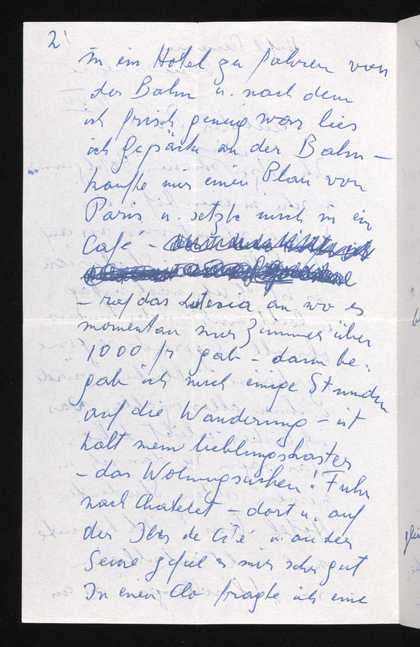 2'
in ein Hotel zu fahren von
der Bahn u. nach dem
ich frisch genug war lies
ich Gepäck an der Bahn –
kaufte mir einen Plan von
Paris u. setzte mich in ein
Café –
– rief das Lutecia an wo es
momentan nur Zimmer über
1000 fr gab – dann be-
gab ich mich einige Stunden
auf die Wanderung – ist
halt mein lieblingslaster
– das Wohnungsuchen! Fuhr
nach Chatelet – dort u. auf
der Iles de Cité u. an der
Seine gefiel es mir sehr gut
In einem Clo fragte ich eine